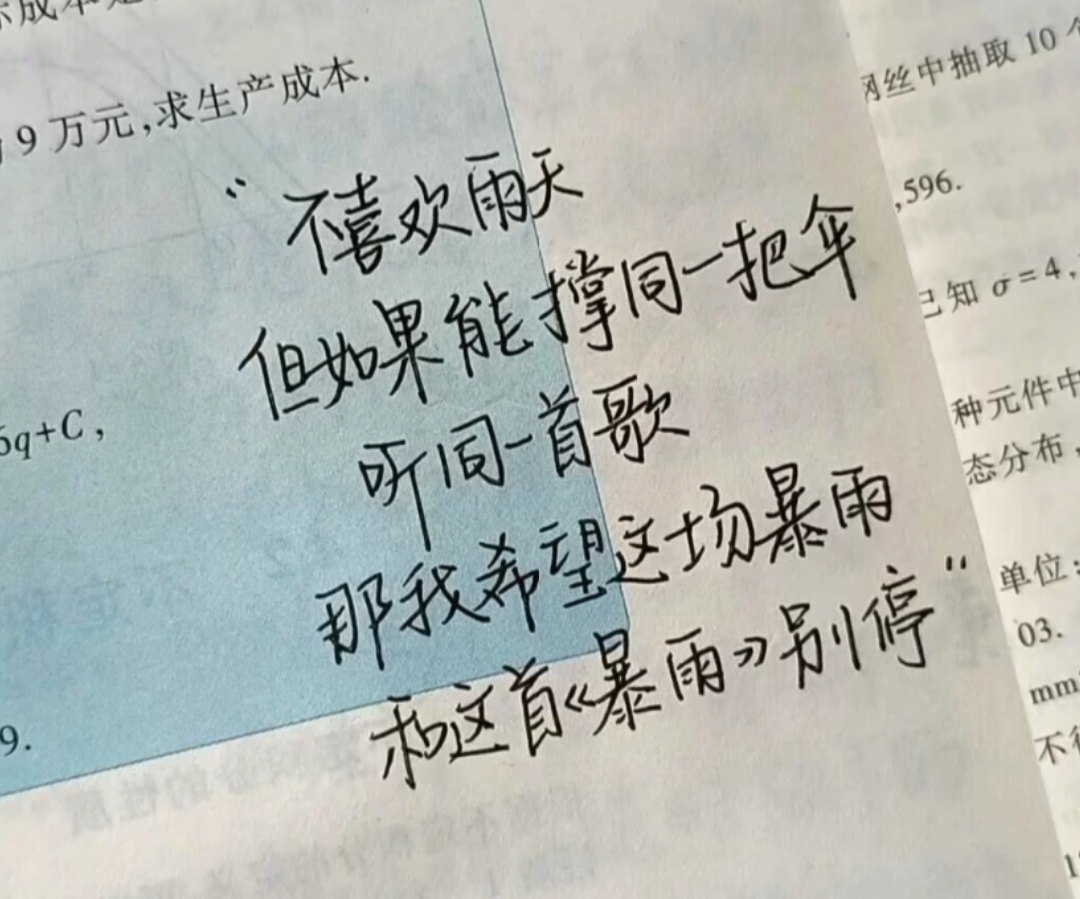 9万元,求生产成本.
“不喜欢雨天
但如果能撑同一把伞
听同一首歌
那我希望这场暴雨
和这首《暴雨》别停”
6q+C,
9.
网丝中抽取10个
,596.
已知 σ=4,
种元件中
态分布,
单位:
03.
mm